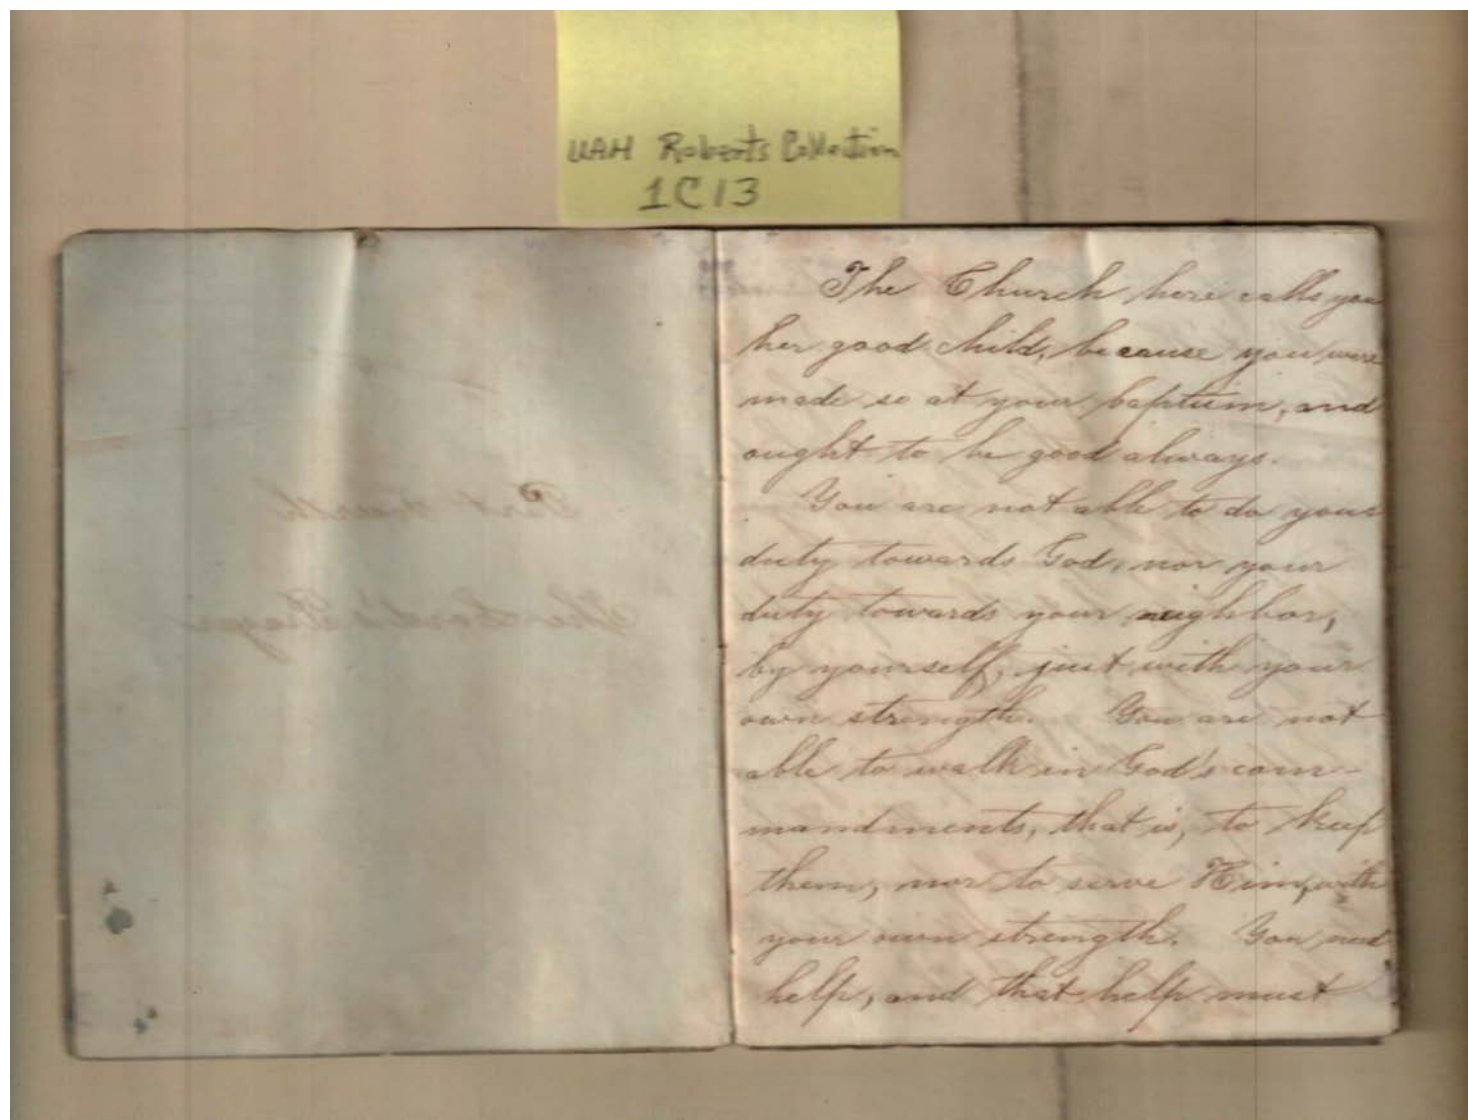 UAH Roberts Collection
1C13
Part Fourth
The Lord's Prayer
The Church here calls you
her good child, because you were
made so at your baptism, and
ought to be good always.
You are not able to do your
duty towards God, nor your
duty towards your neighbor,
by yourself, just with your
own strength. You are not
able to walk in God's com-
mandments, that is, to keep
them, nor to serve Him, with
your own strength. You need
help, and that help must